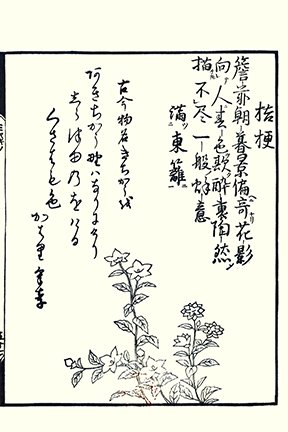 桔梗
朝暮景備奇花影
向人春色醉裏陶然
描不尽一般意
満東籬
古今物名きちかうを
あきちかう野はなりにけり
しらつゆのをける
くさはも色
かはり